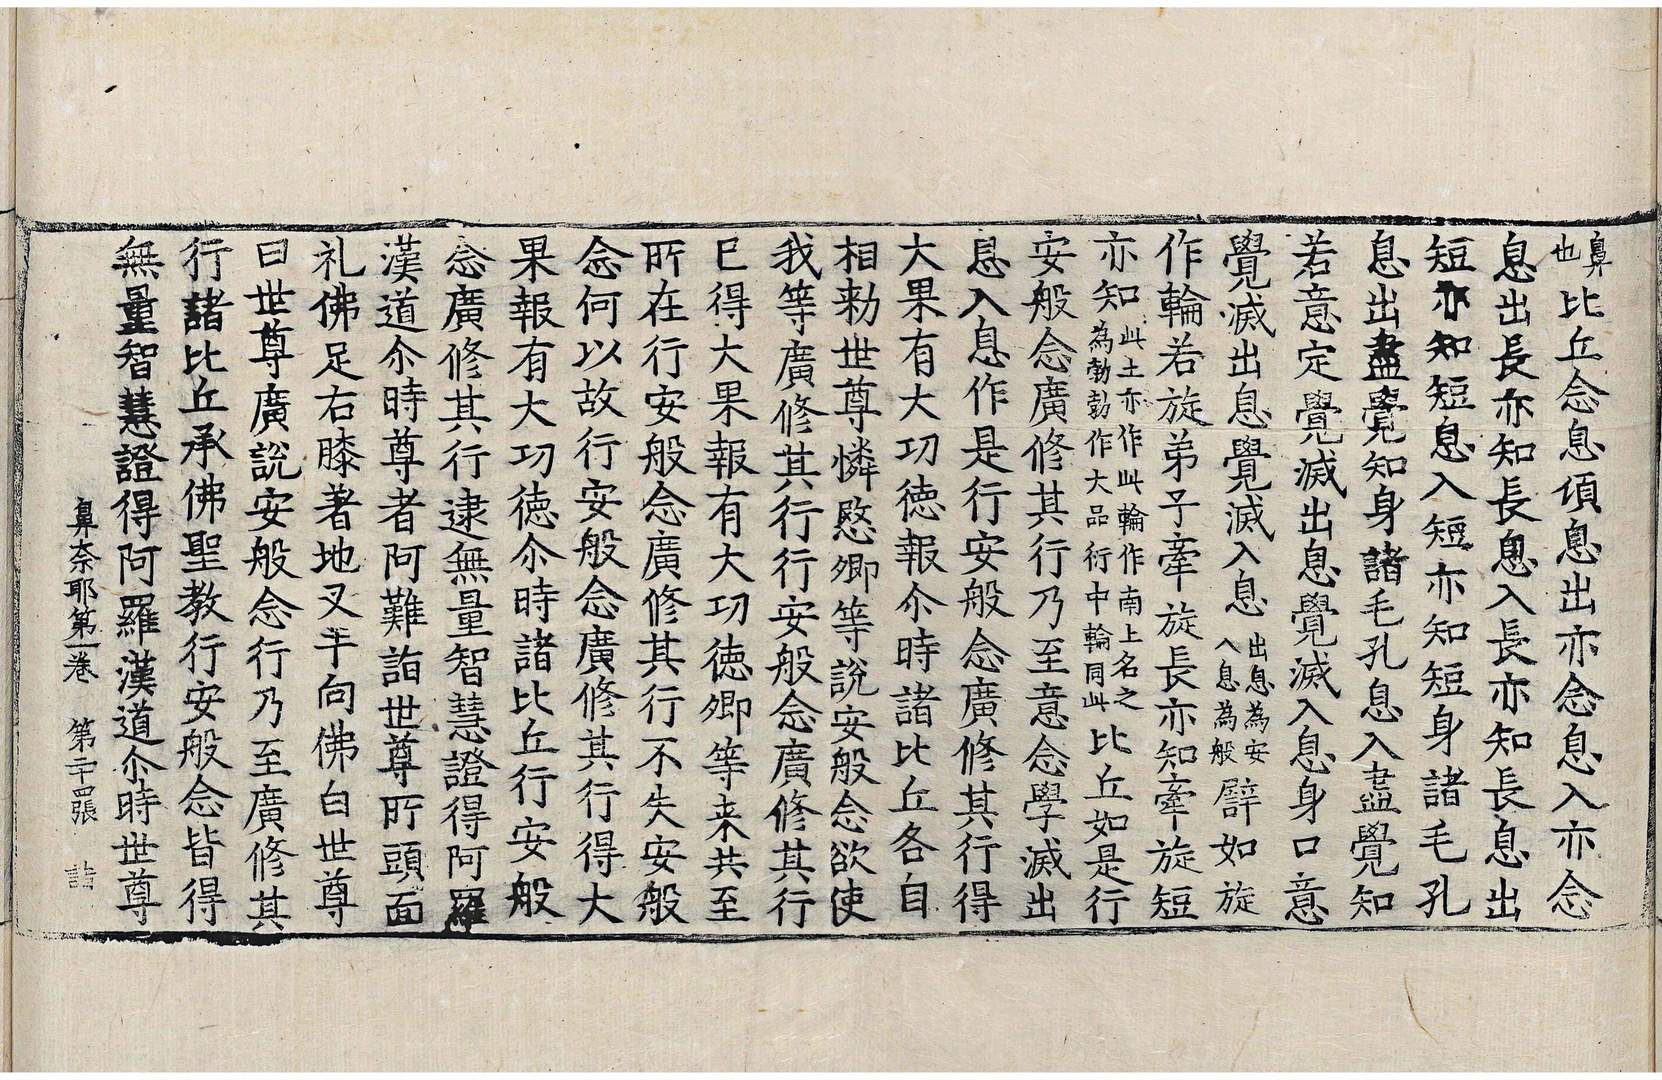 鼻也比丘念息項息出亦念息入亦念
息出長亦知長息入長亦知長息出
短亦知短息入短亦知短身諸毛孔
息出盡覺知身諸毛孔息入盡覺知
若意定覺滅出息覺滅入息身口意
覺滅出息覺滅入息出息為安入息為般譬如旋
作輪若旋弟子牽旋長亦知牽旋短
亦知此土亦作此輪作南上名之為勃勃作大品衍中輪同此比丘如是行
安般念廣修其行乃至意念學滅出
息入息作是行安般念廣修其行得
大果有大功徳報尒時諸比丘各自
相勑世尊憐愍卿等說安般念欲使
我等廣修其行行安般念廣修其行
已得大果報有大功徳卿等来共至
所在行安般念廣修其行不失安般
念何以故行安般念廣修其行得大
果報有大功徳尒時諸比丘行安般
念廣修其行逮無量智慧證得阿羅
漢道尒時尊者阿難詣世尊所頭面
礼佛足右膝著地叉手向佛白世尊
曰世尊廣說安般念行乃至廣修其
行諸比丘承佛聖教行安般念皆得
無量智慧證得阿羅漢道尒時世尊
鼻奈耶第一卷 第二十四張